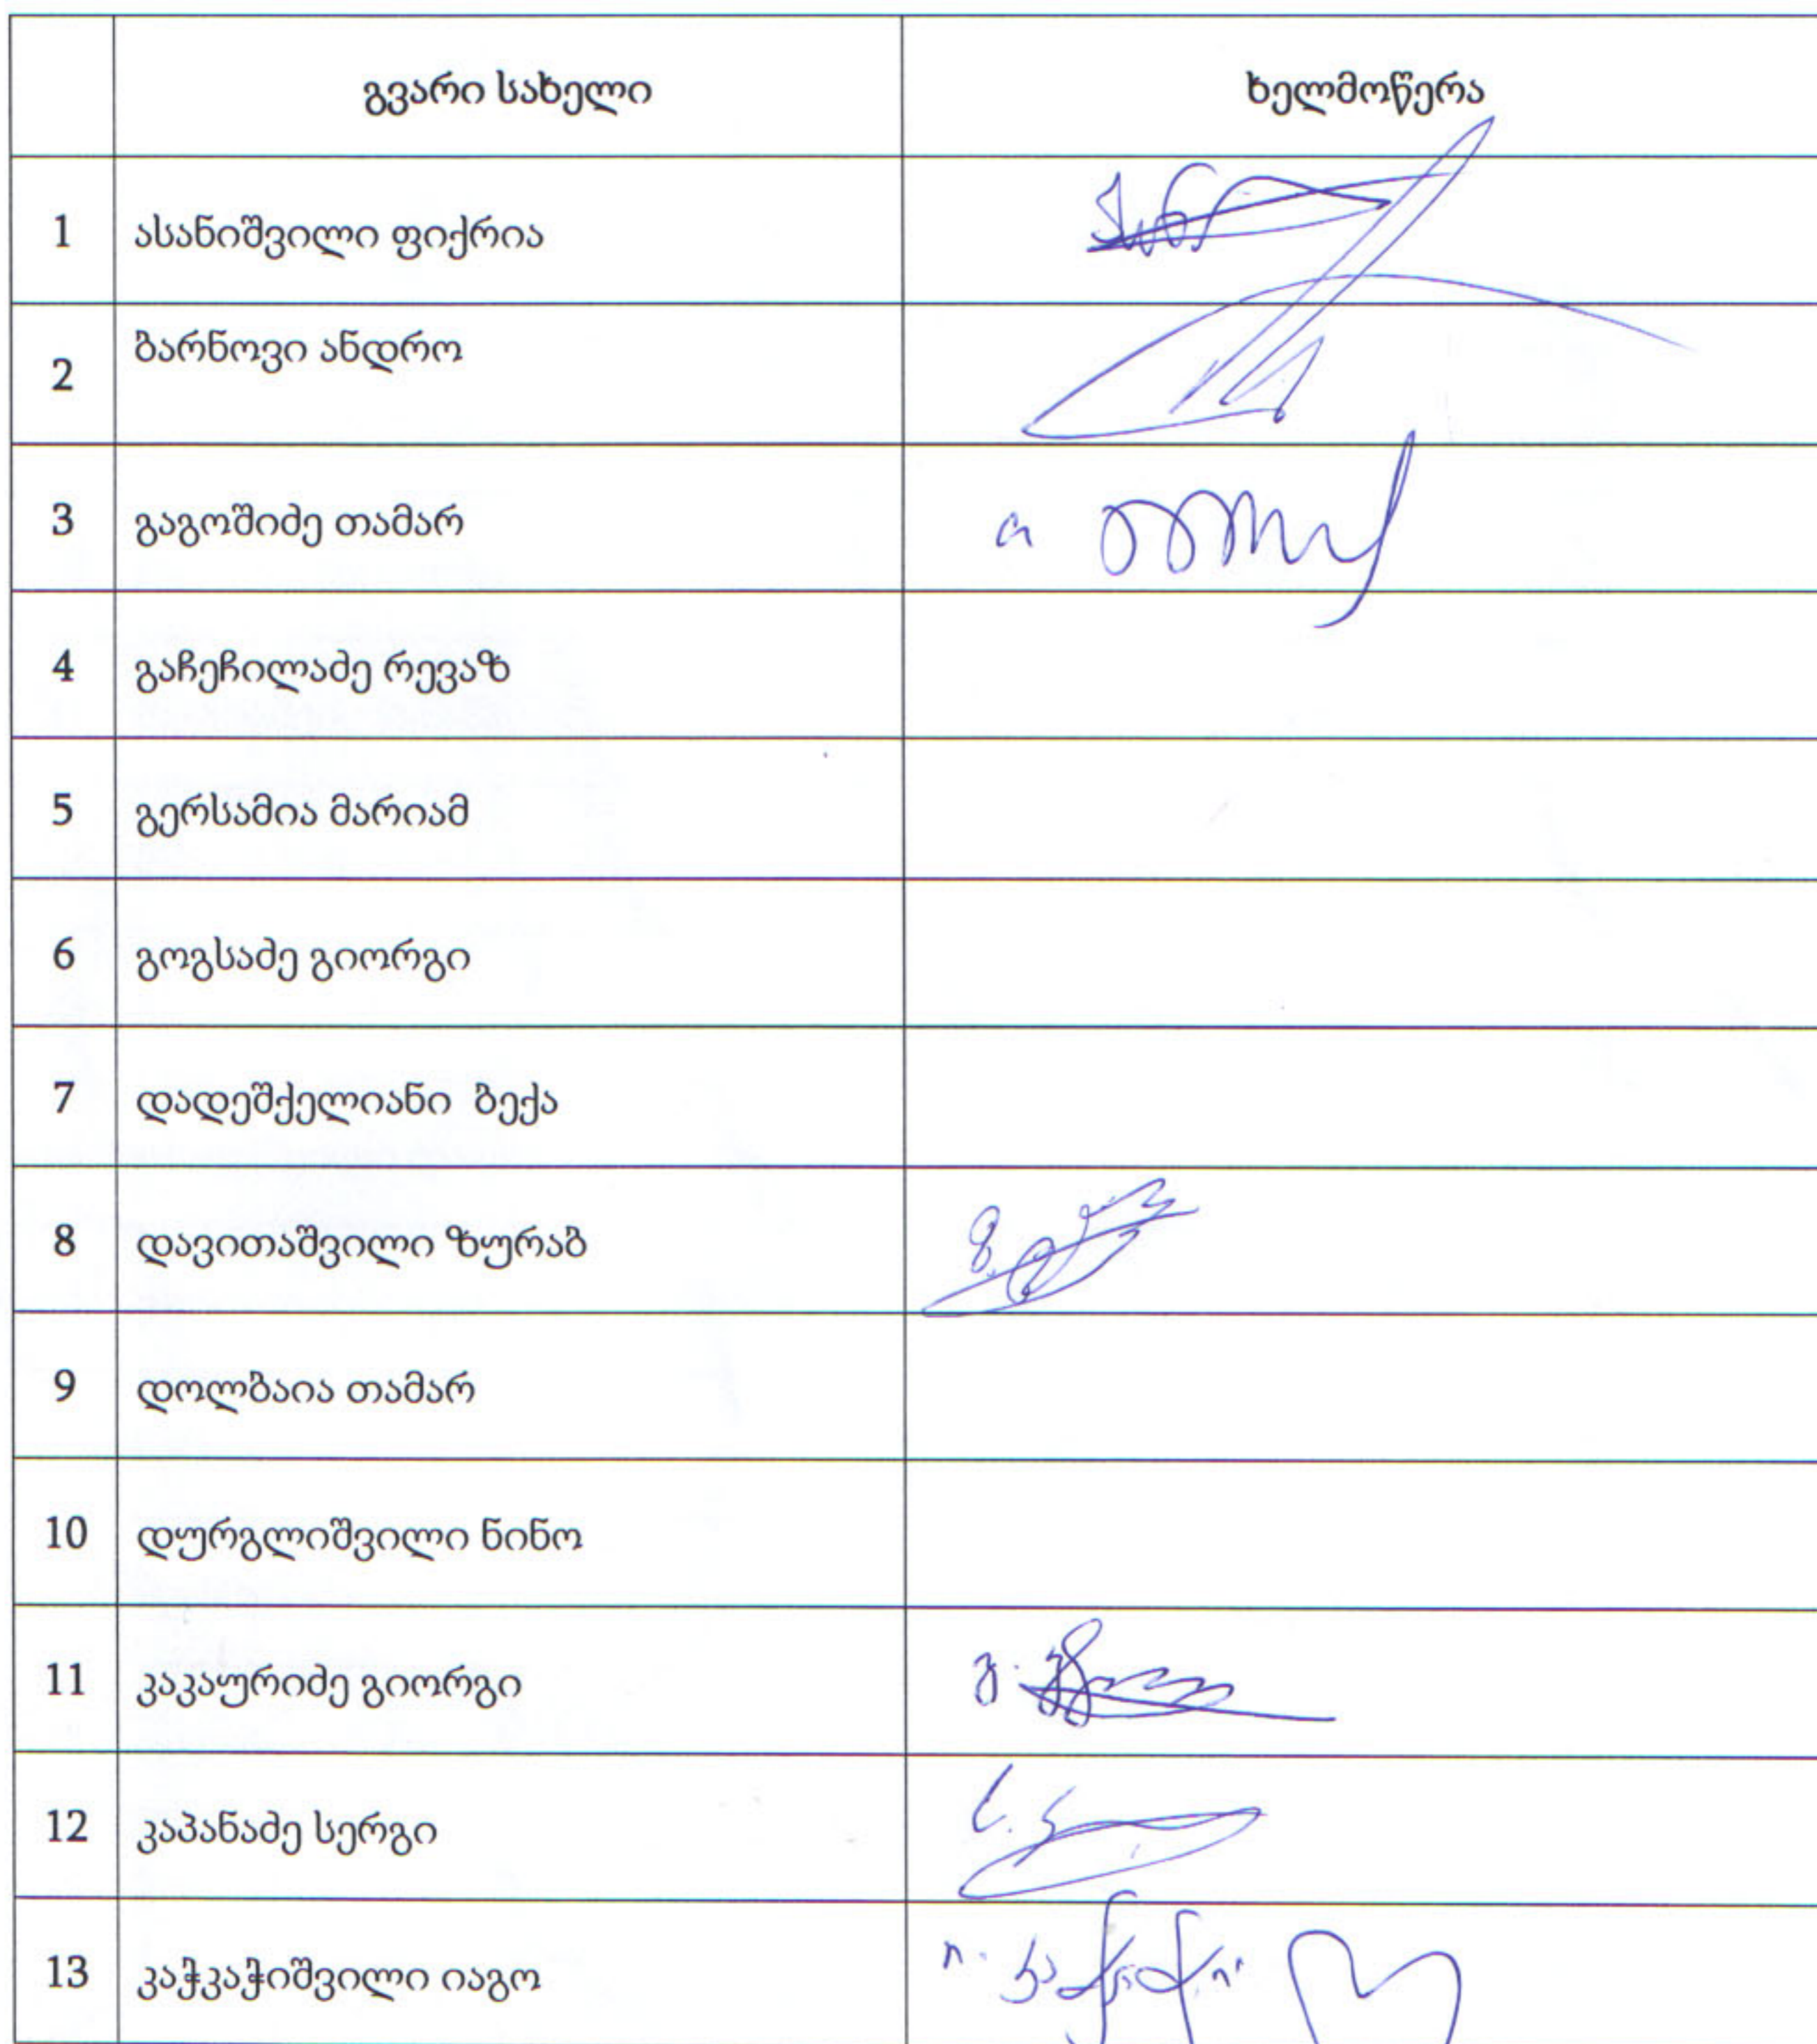 გვარი სახელი ხელმოწერა
1 ასანიშვილი ფიქრია
2 ბარნოვი ანდრო
3 გაგოშიძე თამარ
4 გაჩეჩილაძე რევაზ
5 გერსამია მარიამ
6 გოგსაძე გიორგი
7 დადეშქელიანი ბექა
8 დავითაშვილი ზურაბ
9 დოლბაია თამარ
10 დურგლიშვილი ნინო
11 კაკაურიძე გიორგი
12 კაპანაძე სერგი
13 კაჭკაჭიშვილი იაგო